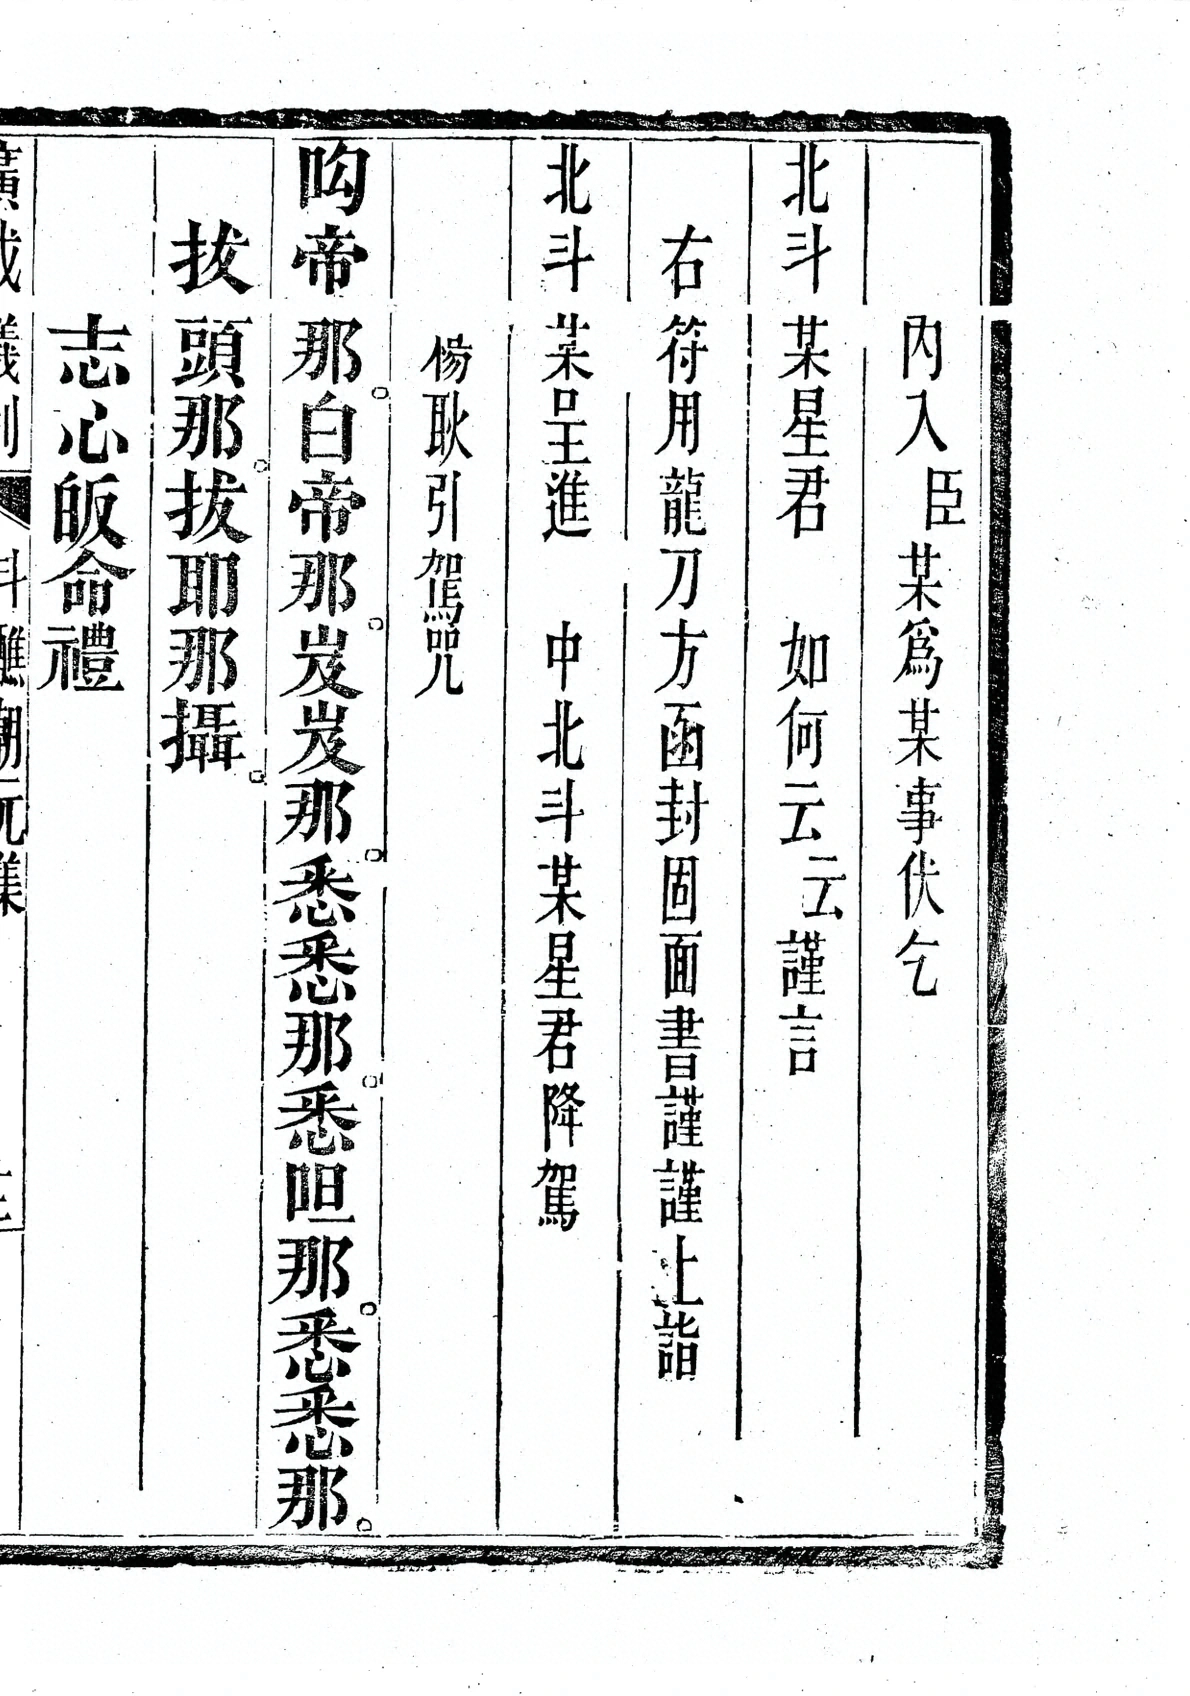 內入臣某爲某事伏乞
北斗某星君 如何云云謹言
右符用龍刀方函封固面書謹謹上詣
北斗某呈進 中北斗某星君降駕
楊耿引駕咒
呁帝那。白帝那。岌岌那。悉悉那。悉呾那。悉悉那。
拔頭那。拔耶那攝。
志心皈命禮
廣成儀制 斗醮朝元集